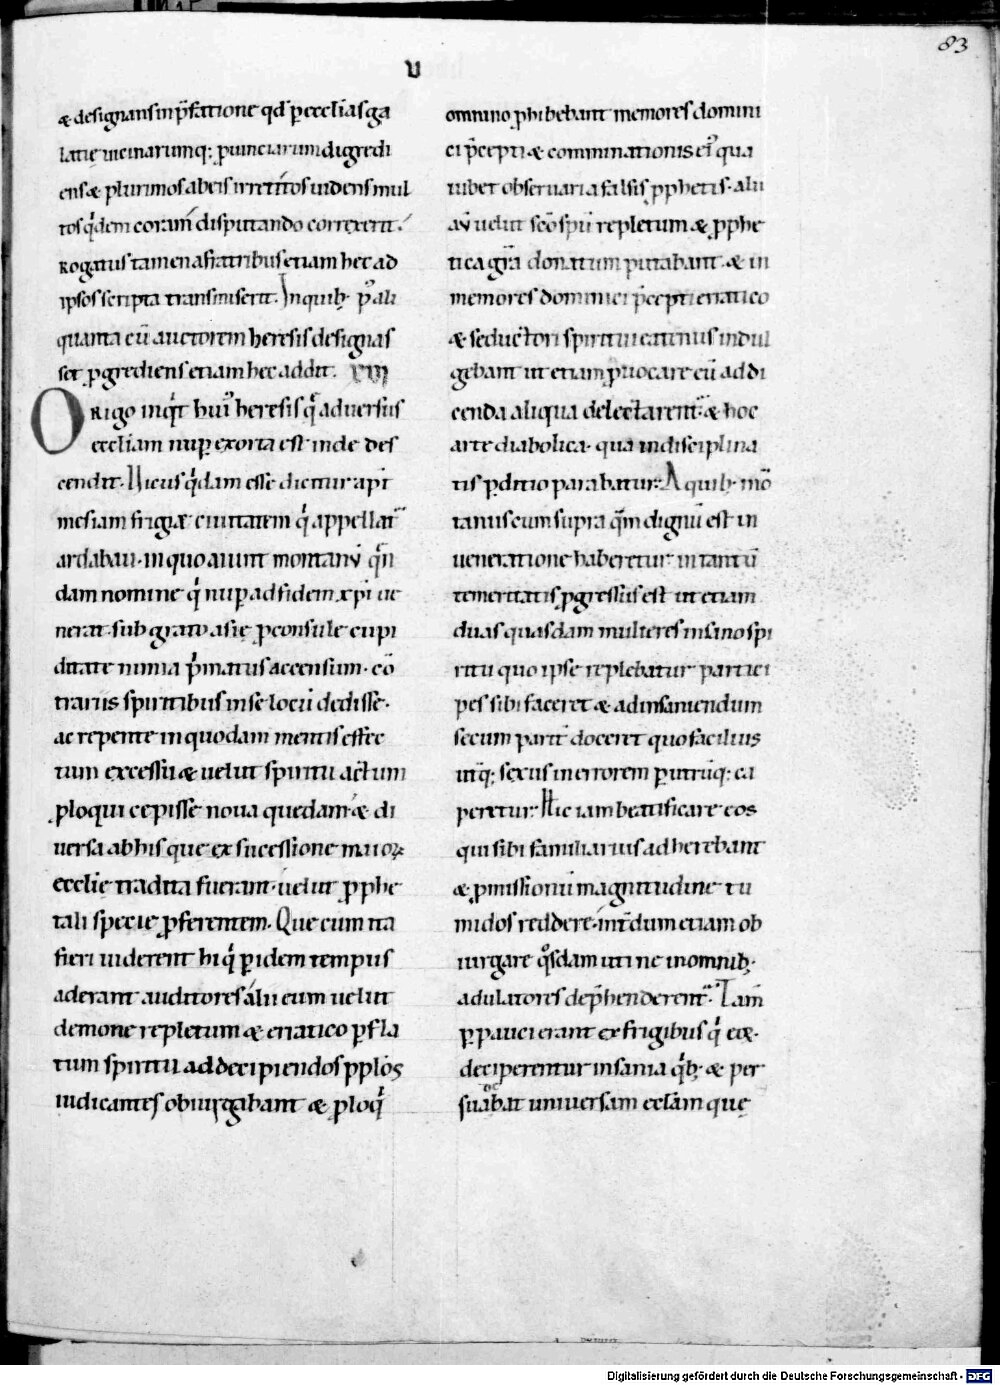 83
U
æ designans in p̄fatione qd̓ p eccl̄ias ga
latię uicinarumq; ꝓuinciarum digredi
ens & plurimos ab eis irretitos uidens mul
tos qͥdem coram disputando correxerit.
Rogatus tamen a fratribus etiam hec ad
ipsos scripta transmiserit. In quib; p̓ ali
quanta cū auctorem heresis designas
set ꝓgrediens etiam hec addit. XVII
ORIgo inqͥt hui᾽ heresis qͣ aduersus
eccl̄iam nup exorta est inde des
cendit. Uicus qͥdam esse dicitur apͥt
mesiam frigiæ ciuitatem qͥ appellat᷑
ardabau. in quo aiunt montanū qn̄
dam nomine qͥ nup ad fidem xp̄i ue
nerat sub grato asię ꝓconsule cupi
ditate nimia pͥmatus accensum. cō
trariis spiritibus in se locū dedisse.
ac repente in quodam mentis effec
tum excessu & uelut spiritu actum
ꝓloqui cepisse noua quedam & di
uersa ab his que ex sucessione maioꝝ
ecclię tradita fuerant. uelut ꝓphe
tali specie ꝓferentem. Que cum ita
fieri uiderent hi qͥ p idem tempus
aderant auditores alii eum uelut
demone repletum & erratico pfla
tum spiritu ad decipiendos pplōs
iudicantes obiurgabant & ꝓloqͥ
omnino ꝓhibebant memores domini
ci p̄cepti & comminationis ei᾽ qua
iubet obseruari a falsis ꝓphetis. alii
aū uelut sc̄o spū repletum & ꝓphe
tica gr̄a donatum putabant. & in
memores dominici p̄cepti erratico
& seductori spiritui eatinus indul
gebant ut etiam ꝓuocare cū ad di
cenda aliqua delectarent᷑. & hoc
arte diabolica. qua indisciplina
tis pditio parabatur. A quib; mō
tanus cum supra qm̄ dignū est in
ueneratione haberetur. in tantū
temeritatis ꝓgressus est ut etiam
duas quasdam mulieres insino spi
ritu quo ipse replebatur partici
pes sibi faceret & ad insaniendum
secum parit̄ doceret quo facilius
utq; sexus in errorem p utrūq; ca
peretur. Hic iam beatificare eos
qui sibi familiarius adherebant
& ꝓmissionū magnitudine tu
midos reddere. int̄dum etiam ob
iurgare qͦsdam uti ne in omnib;
adulatores dep̄henderent᷑. Tam
p pauci erant ex frigibus qͥ eiæ.
deciperentur insania qͥb; & per
suāͦbat uniuersam ecl̄am quę
Digitalisierung gefördert durch die Deutsche Forschungsgemeinschaft - DFG